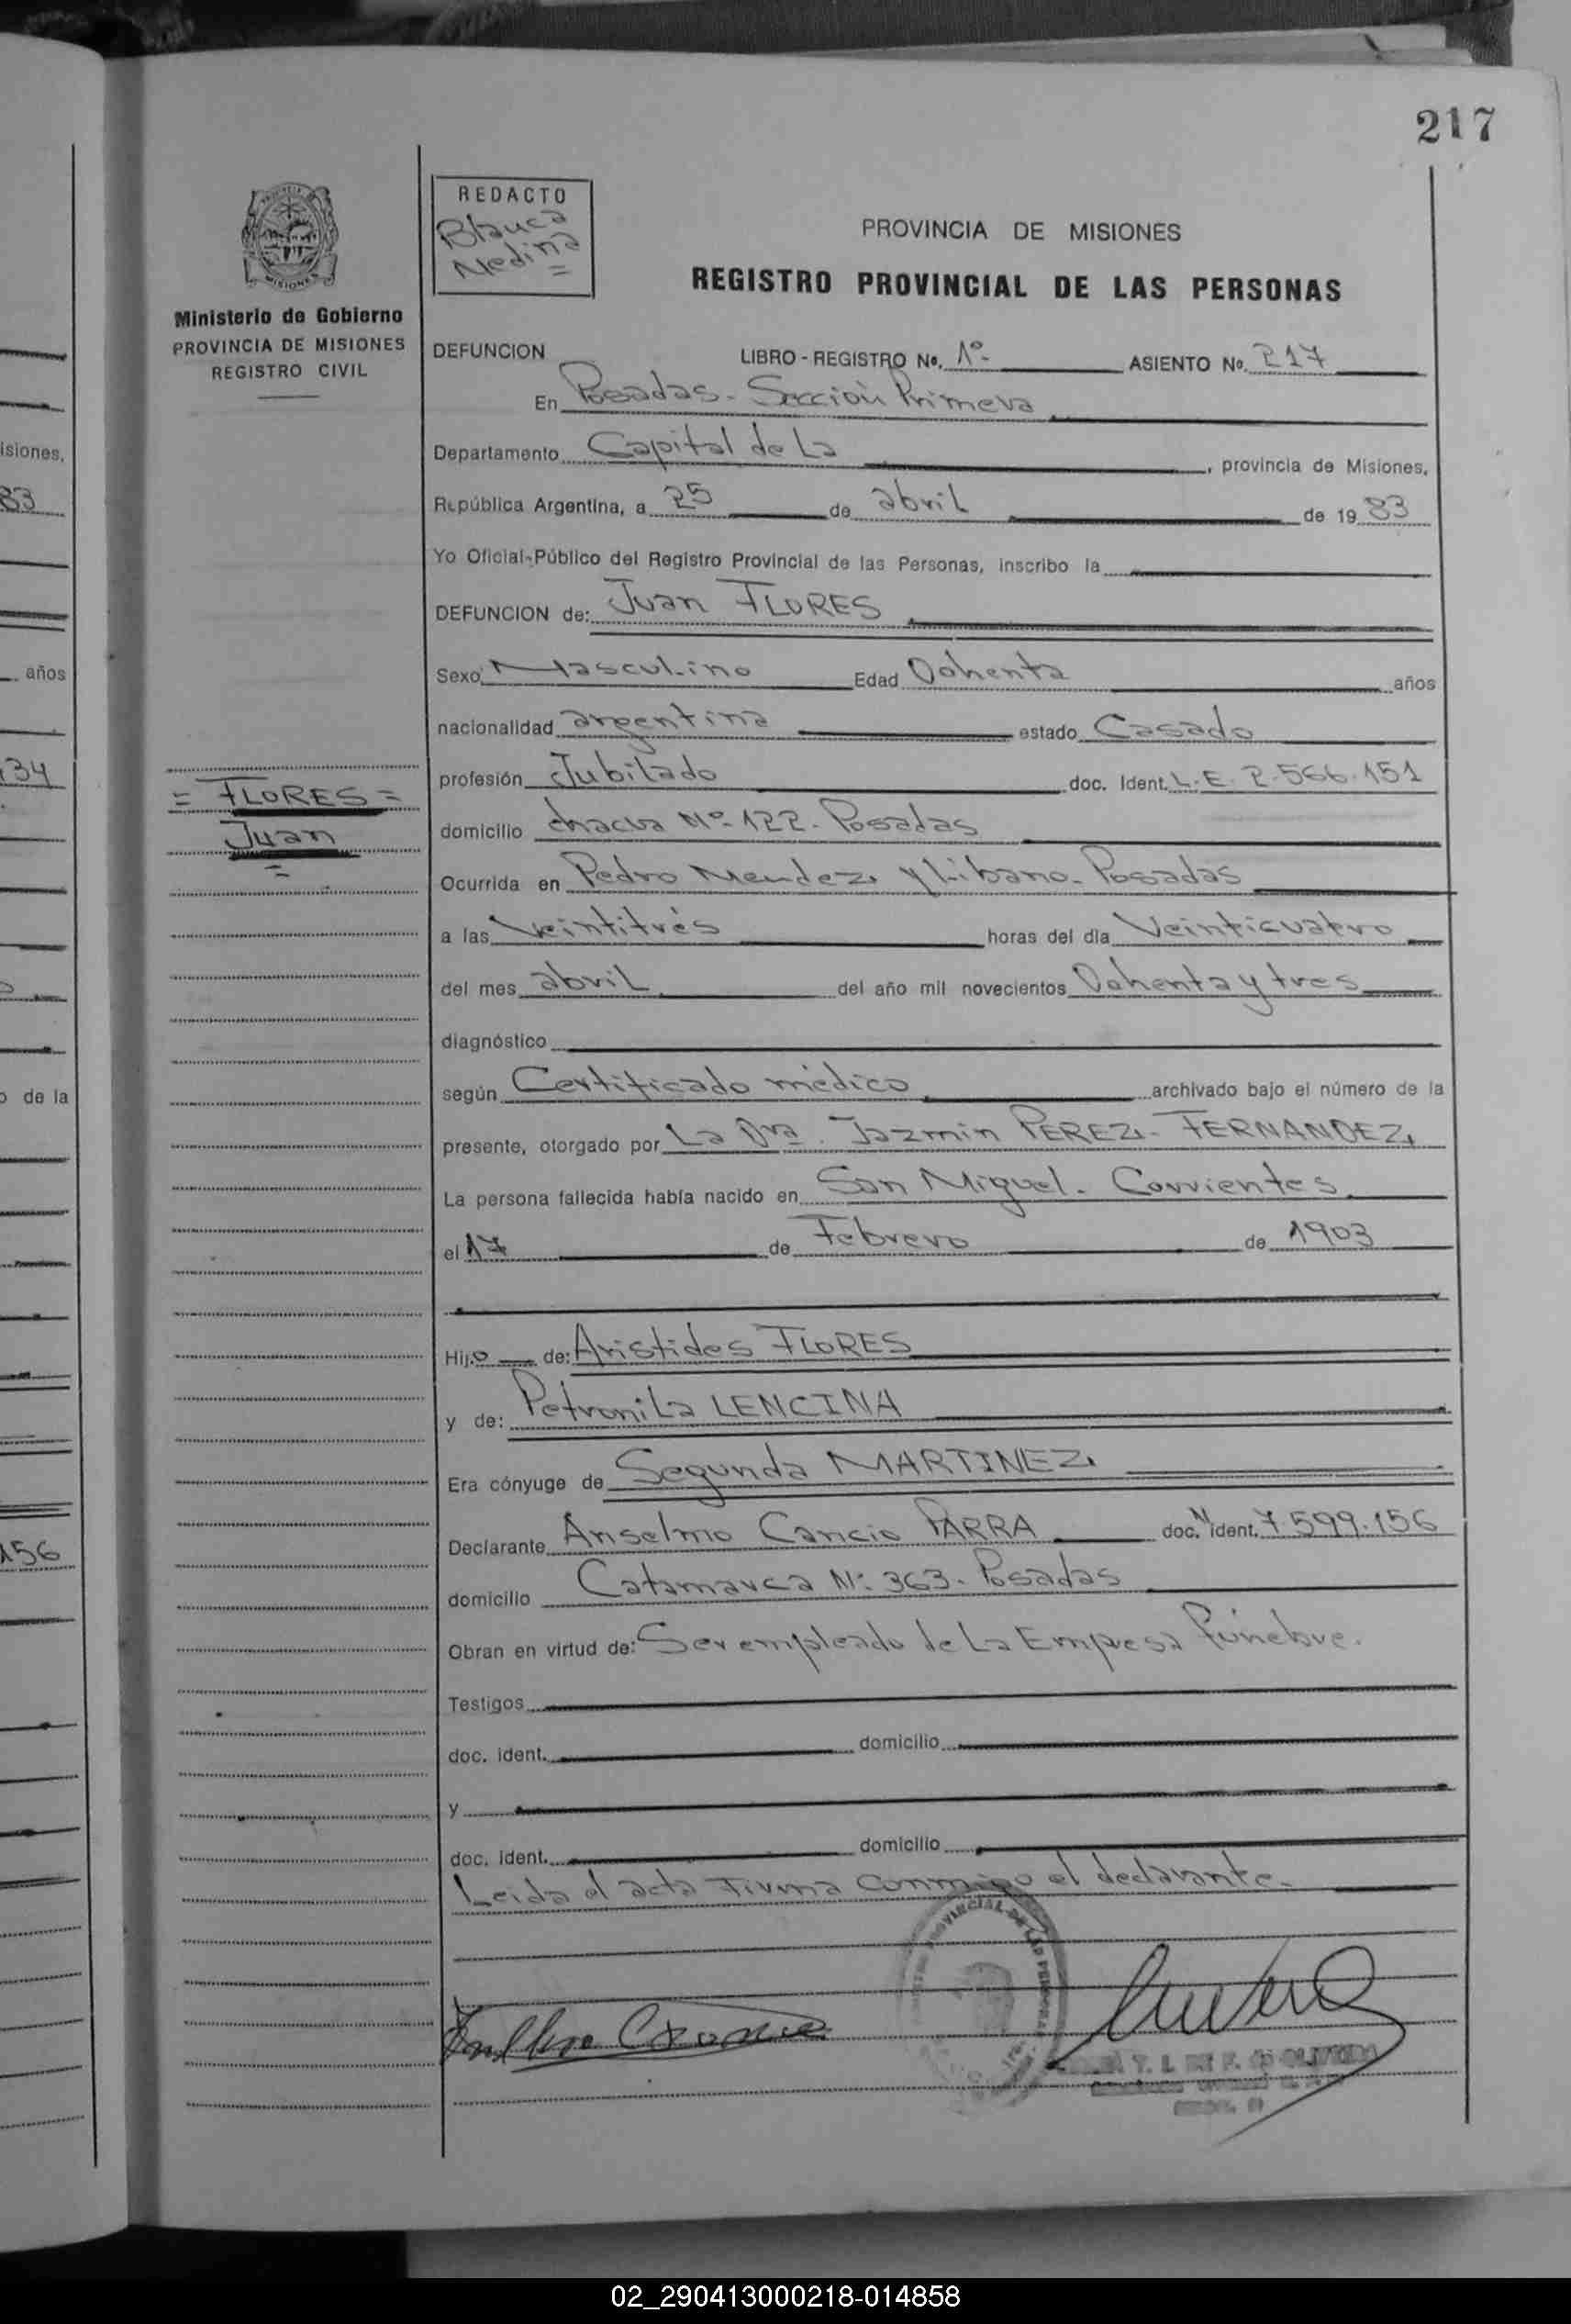 217
REDACTO
Blanca
Medina
PROVINCIA DE MISIONES
REGISTRO PROVINCIAL DE LAS PERSONAS
Ministerio de Gobierno
PROVINCIA DE MISIONES
REGISTRO CIVIL
DEFUNCION LIBRO - REGISTRO No. 1º- ASIENTO No. 217
En Posadas- Sección Primera
Departamento Capital de La, provincia de Misiones,
República Argentina, a 25 de abril de 19 83
Yo Oficial-Público del Registro Provincial de las Personas, inscribo la
DEFUNCION de: Juan FLORES
Sexo Masculino Edad Oohenta años
nacionalidad argentina estado Casado
profesión Jubilado doc. Ident. L.E. 2.566.151
= FLORES =
Juan
=
domicilio chacra Nº 122- Posadas
Ocurrida en Pedro Mendez y Libano- Posadas
a las Veintitrés horas del día Veinticuatro
del mes abril del año mil novecientos Oohenta y tres
diagnóstico
según Certificado médico archivado bajo el número de la
presente, otorgado por La Dra. Jazmin PEREZ- FERNANDEZ
La persona fallecida había nacido en San Miguel- Corrientes
el 17 de Febrero de 1903
Hijo de: Aristides FLORES
y de: Petronila LENCINA
Era cónyuge de Segunda MARTINEZ
Declarante Anselmo Cancio PARRA doc. Ident. 7.599.156
domicilio Catamarca Nº 363- Posadas
Obran en virtud de: Ser empleado de La Empresa Fúnebre.
Testigos
doc. ident. domicilio
y
doc. ident. domicilio
Leida el acta Firma conmigo el declarante-
isiones,
83
años
134
o de la
156
02_290413000218-014858